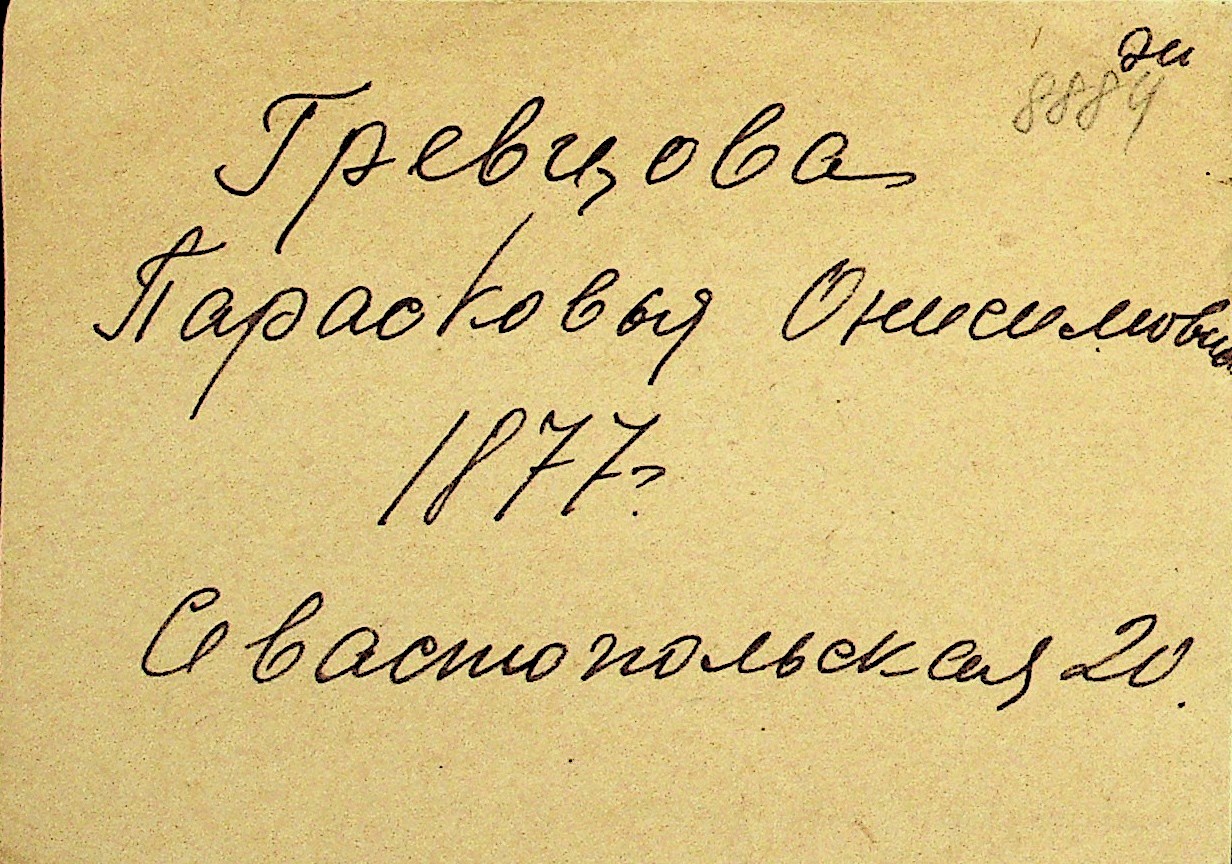 8884
Гревцова
Парасковья Онисимовна
1877 г
Севастопольская 20.